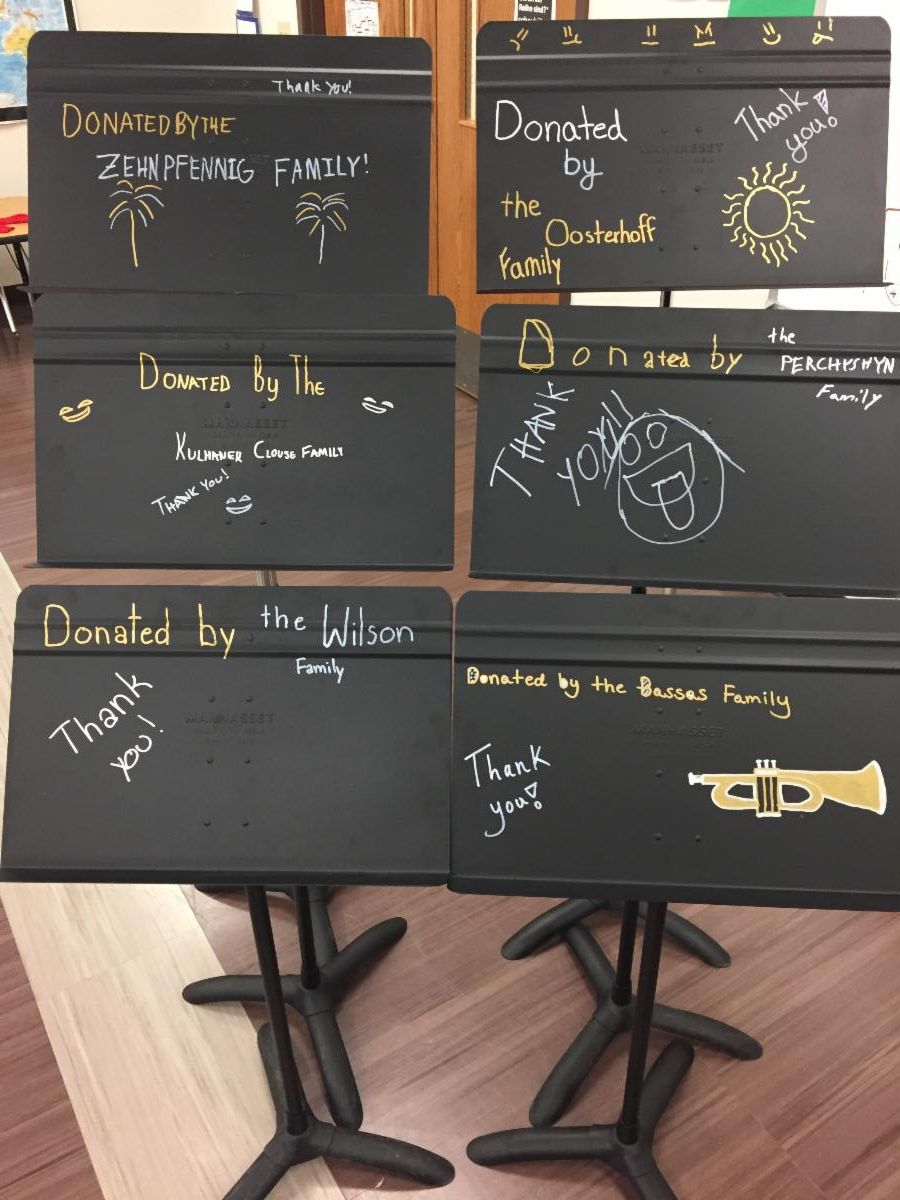 Thank you!
DONATED BY THE
ZEHNPFENNIG FAMILY!
Donated
by
the
Oosterhoff
Family
Thank
you!
DONATED By The
KULHANER CLOUSE FAMILY
THANK YOU!
MANHASSET
Donated by the
PERCHYSHYN
Family
THANK
YOU!!
Donated by the Wilson
Family
Thank
you!
MANHASSET
Donated by the Bassas Family
Thank
you!
MANHASSET